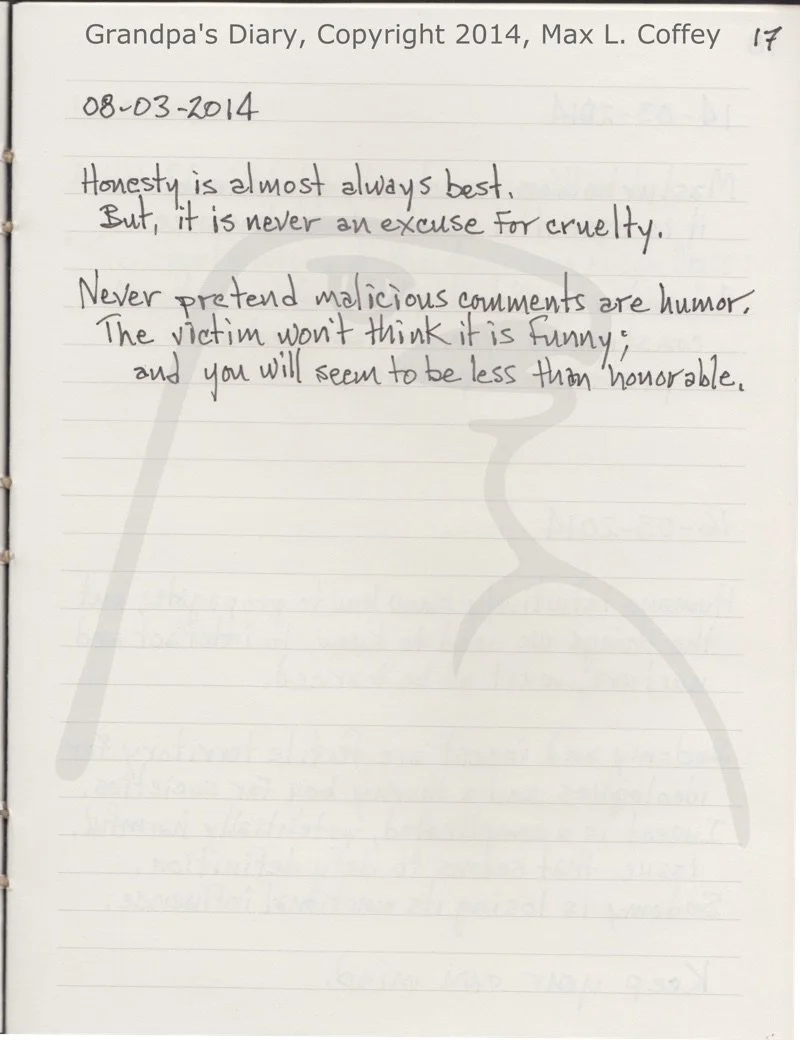 Grandpa's Diary, Copyright 2014, Max L. Coffey 17
08-03-2014
Honesty is almost always best.
But, it is never an excuse for cruelty.
Never pretend malicious comments are humor.
The victim won't think it is funny;
and you will seem to be less than honorable.